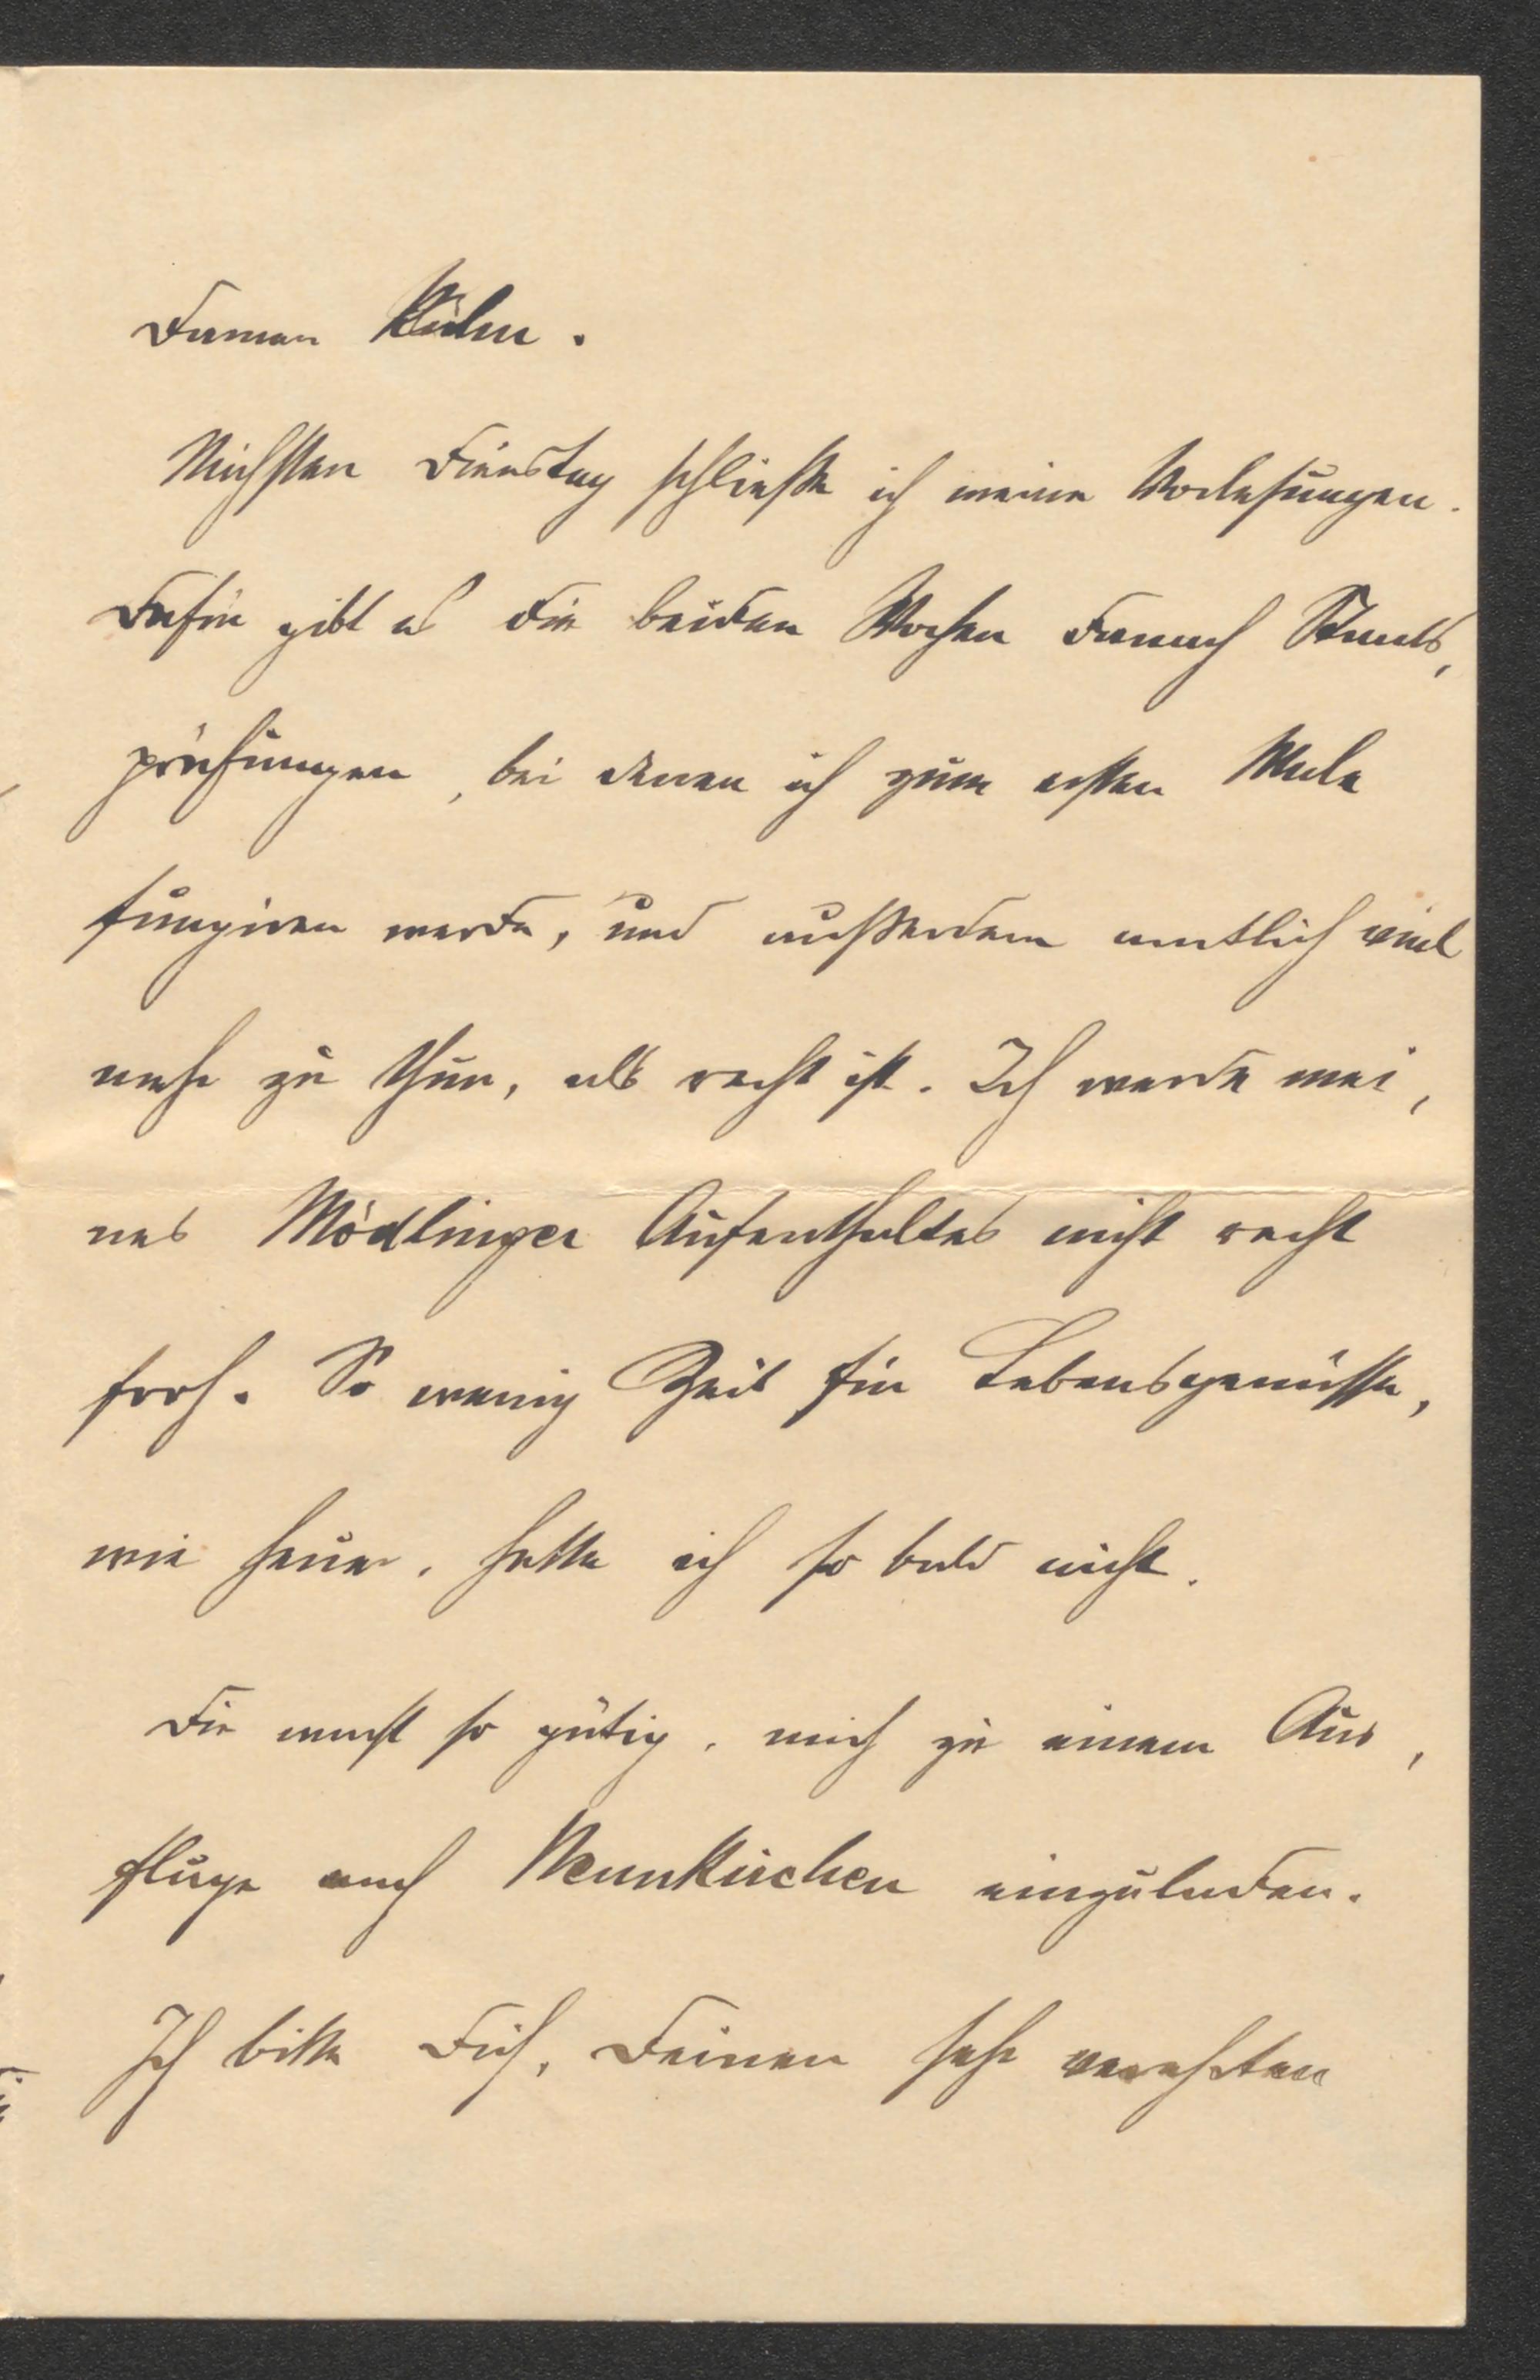 Damen Kulm.
Nächsten Dienstag schließe ich meine Vorlesungen.
Dafür gibt es die beiden Wochen danach Staats-
prüfungen, bei denen ich zum ersten Male
fungiren werde, und außerdem amtlich viel
mehr zu thun, als recht ist. Ich werde mei-
nes Mödlinger Aufenthaltes nicht recht
froh. So wenig Zeit für Lebensgenüsse,
wie heuer, hatte ich so bald nicht.
Du warst so gütig, mich zu einem Aus-
fluge nach Neunkirchen einzuladen.
Ich bitte Dich, Deinen sehr verehrten